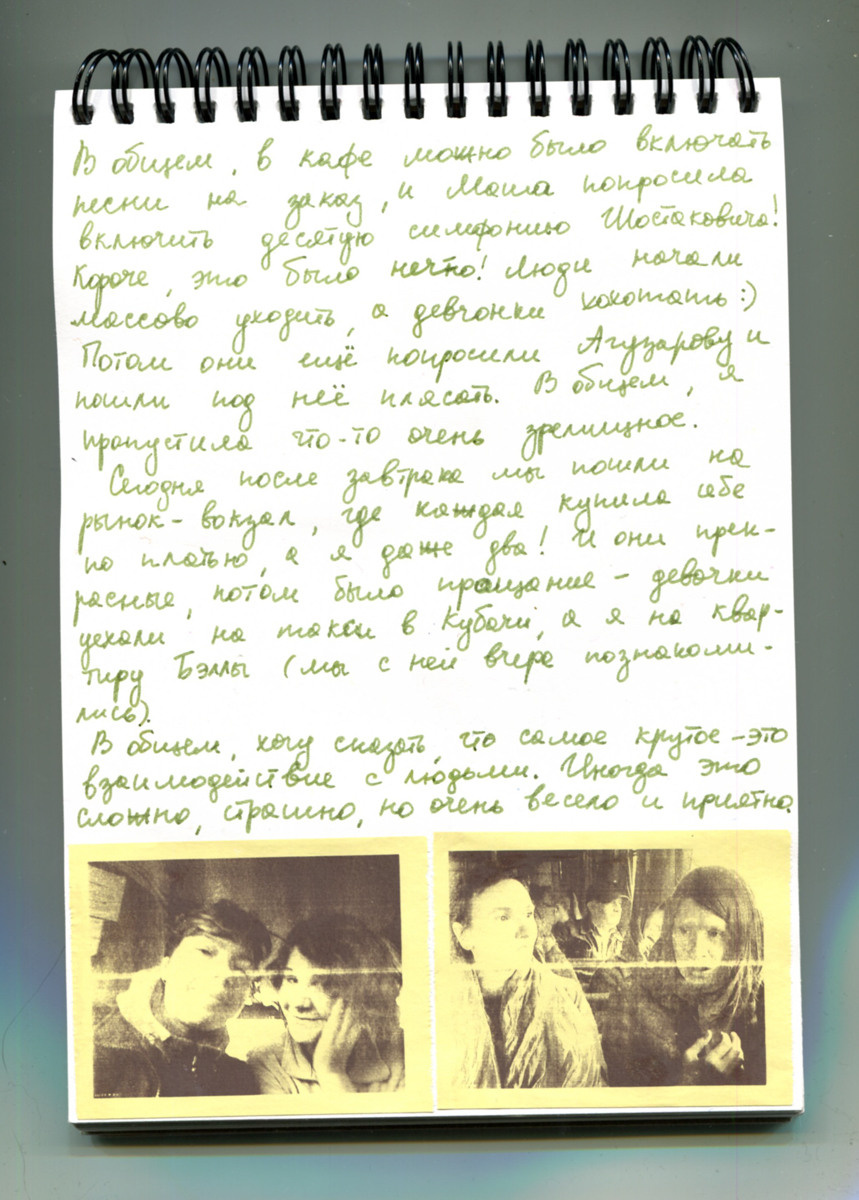 В общем, в кафе можно было включать
песни на заказ, и Маша попросила
включить десятую симфонию Шостаковича!
Короче, это было нечто! Люди начали
массово уходить, а девчонки хохотать :)
Потом они ещё попросили Агузарову и
пошли под неё плясать. В общем, я
пропустила что-то очень зрелищное.
Сегодня после завтрака мы пошли на
рынок-вокзал, где каждая купила себе
по платью, а я даже два! И они прек-
расные, потом было прощание - девочки
уехали на такси в Кубачи, а я на квар-
тиру Бэллы (мы с ней вчера познакоми-
лись).
В общем, хочу сказать, что самое крутое - это
взаимодействие с людьми. Иногда это
сложно, страшно, но очень весело и приятно.